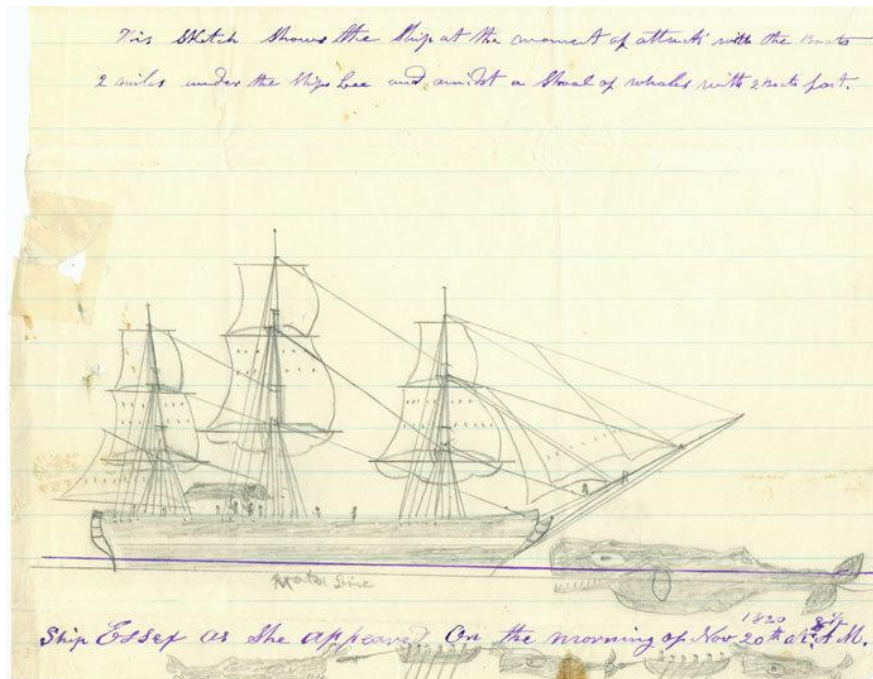 This Sketch Shows the Ship at the moment of attack with the Boats
2 miles under the Ships Lee and amidst a Shoal of whales with 2 Boats fast.
Water Line
Ship Essex as She appeared On the morning of Nov 20th 1820 at A.M.